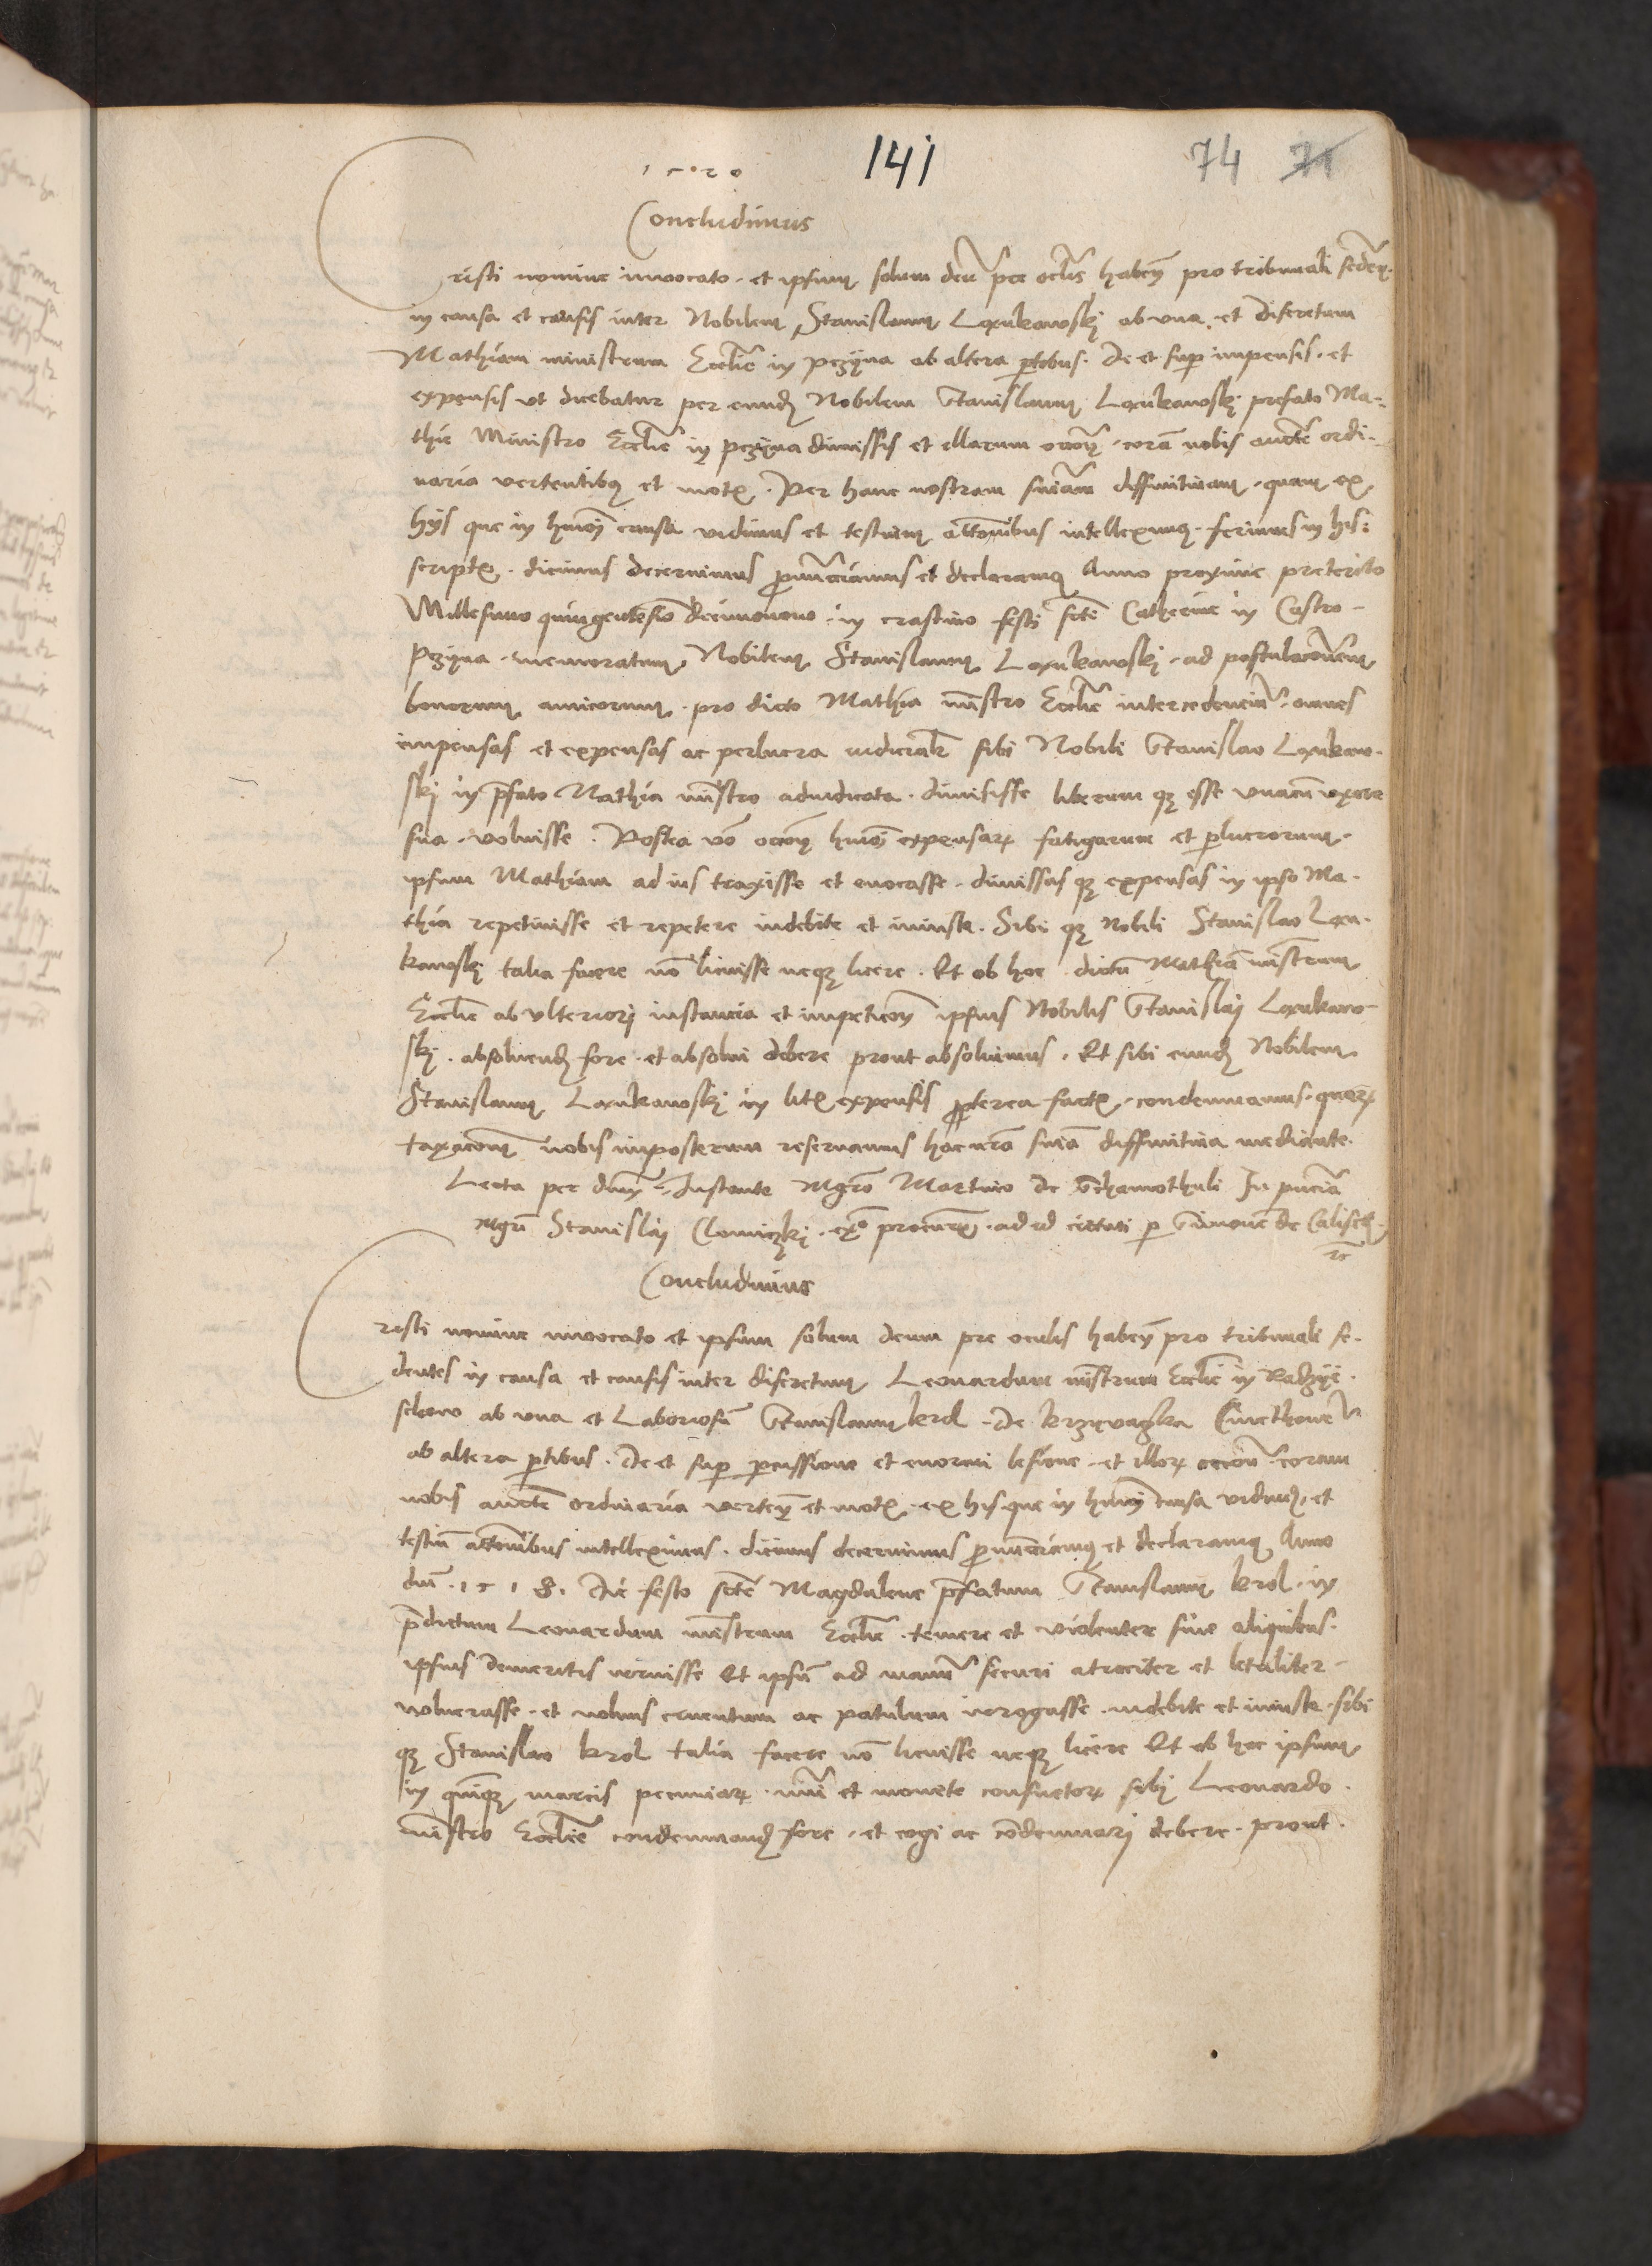 1520 141 74 71
Concludimus
Cristi nomine invocato et ipsum solum deū pre oclis habeń pro tribunali sedeń
in causa et causis inter Nobilem Stanislaum Lqnkowski ab vna et discretum
Mathiam ministrum Ecclie in ab altera ptibus de et sup impensis et
expensis vt dicebatur per eund Nobilem Stanislaum prefato Ma-
thie Ministro Ecclie in dimissis et illarum occoñe corā nobis aucte ordi-
naria vertentibus et motis Per hanc nostram sniam diffinitivam quam ex
hijs que in hmoi causa vidimus et testium attonibus intelleximus ferimus in his
scriptis dicimus decernimus pnuncciamus et declaramus Anno proxime preterito
Millesimo quingentesimo decimonono in crastino festi scte Catherine in Castro
memoratum Nobilem Stanislaum ad postulaconem
bonorum amicorum pro dicto Mathia mistro Ecclie intercedencium omnes
impensas et expensas ac perlucra iudicialr sibi Nobili Stanislao
ski in pfato Mathia mistro adiudicata dimisisse liberum q esse vnacum vxore
sua voluisse Postea vo occone hmoi expensar fatigarum et plucrorum
ipsum Mathiam ad ius traxisse et euocasse dimissas q expensas in ipso Ma-
thia repetiuisse et repetere indebite et iniuste Sibi q Nobili Stanislao
kowski talia facere nō licuisse neq licere Et ob hoc dictū Mathiā mistrum
Ecclie ab vlteriori instancia et impeticone ipsius Nobilis Stanislai
ski absoluend fore et absolui debere prout absoluimus Et sibi eund Nobilem
Stanislaum in litis expensis propterea factis condemnamus quar
taxaconem nobis imposterum reseruamus hac nrā sniā diffinitiua mediante
Lecta per dnm Instante Mgro Martino de Schamothuli In pncia
mgri Stanislai ex procuris ad id citati p Simone de Calisch
rc
Concludimus
Cristi nomine invocato et ipsum solum deum pre oculis habeń pro tribunali se-
dentes in causa et causis inter discretum Leonardum mistrum Ecclie in
schewo ab vna et Laboriosū Stanislaum krol de Cmethonem
ab altera ptibus de et sup pcussione et enormi lesione et illor occone coram
nobis aucte ordinaria verteń et motis ex his que in hmoi causa vidimus et
testiū attonibus intelleximus dicimus decernimus pnuncciamus et declaramus Anno
dni 1518 die festo scte Magdalene pfatum Stanislaum krol in
pdictum Leonardum mistrum Ecclie temere et violenter sine aliquibus
ipsius demeritis irruisse Et ipsū ad manū securi atrociter et letaliter
vulnerasse et vulnus cruentum ac patulum irrogasse indebite et iniuste sibi
q Stanislao krol talia facere nō licuisse neq licere Et ob hoc ipsum
in quinq marcis pecuniar nūi et monete consuetor sibi Leonardo
mistro Ecclie condemnand fore et cogi ac cōdemnari debere prout